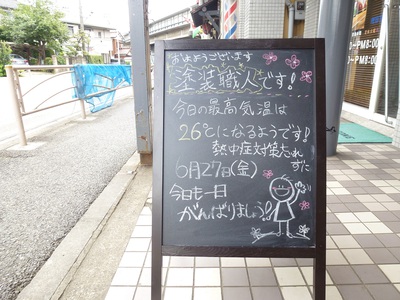 おはようございます
塗装職人です!
今日の最高気温は
26℃になるようです!
熱中症対策忘れ
ずに
6月27日(金)
今日も一日
がんばりましょう!!